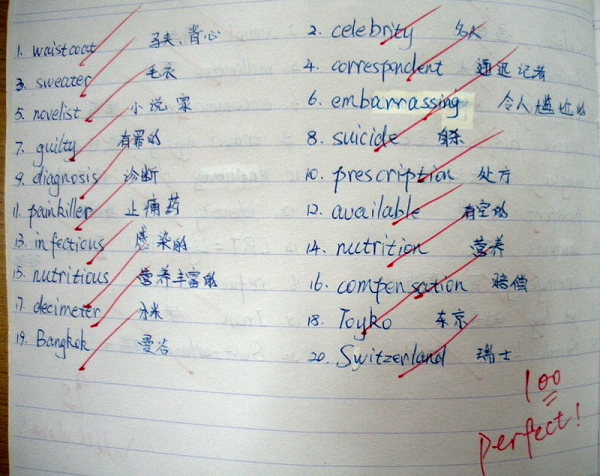 1. waistcoat 马夹、背心 2. celebrity 名人
3. sweater 毛衣 4. correspondent 通迅记者
5. novelist 小说家 6. embarrassing 令人尴尬的
7. guilty 有罪的 8. suicide 自杀
9. diagnosis 诊断 10. prescription 处方
11. painkiller 止痛药 12. available 有空的
13. infectious 感染的 14. nutrition 营养
15. nutritious 营养丰富的 16. compensation 赔偿
17. decimeter 分米 18. Toyko 东京
19. Bangkok 曼谷 20. Switzerland 瑞士
100
perfect!